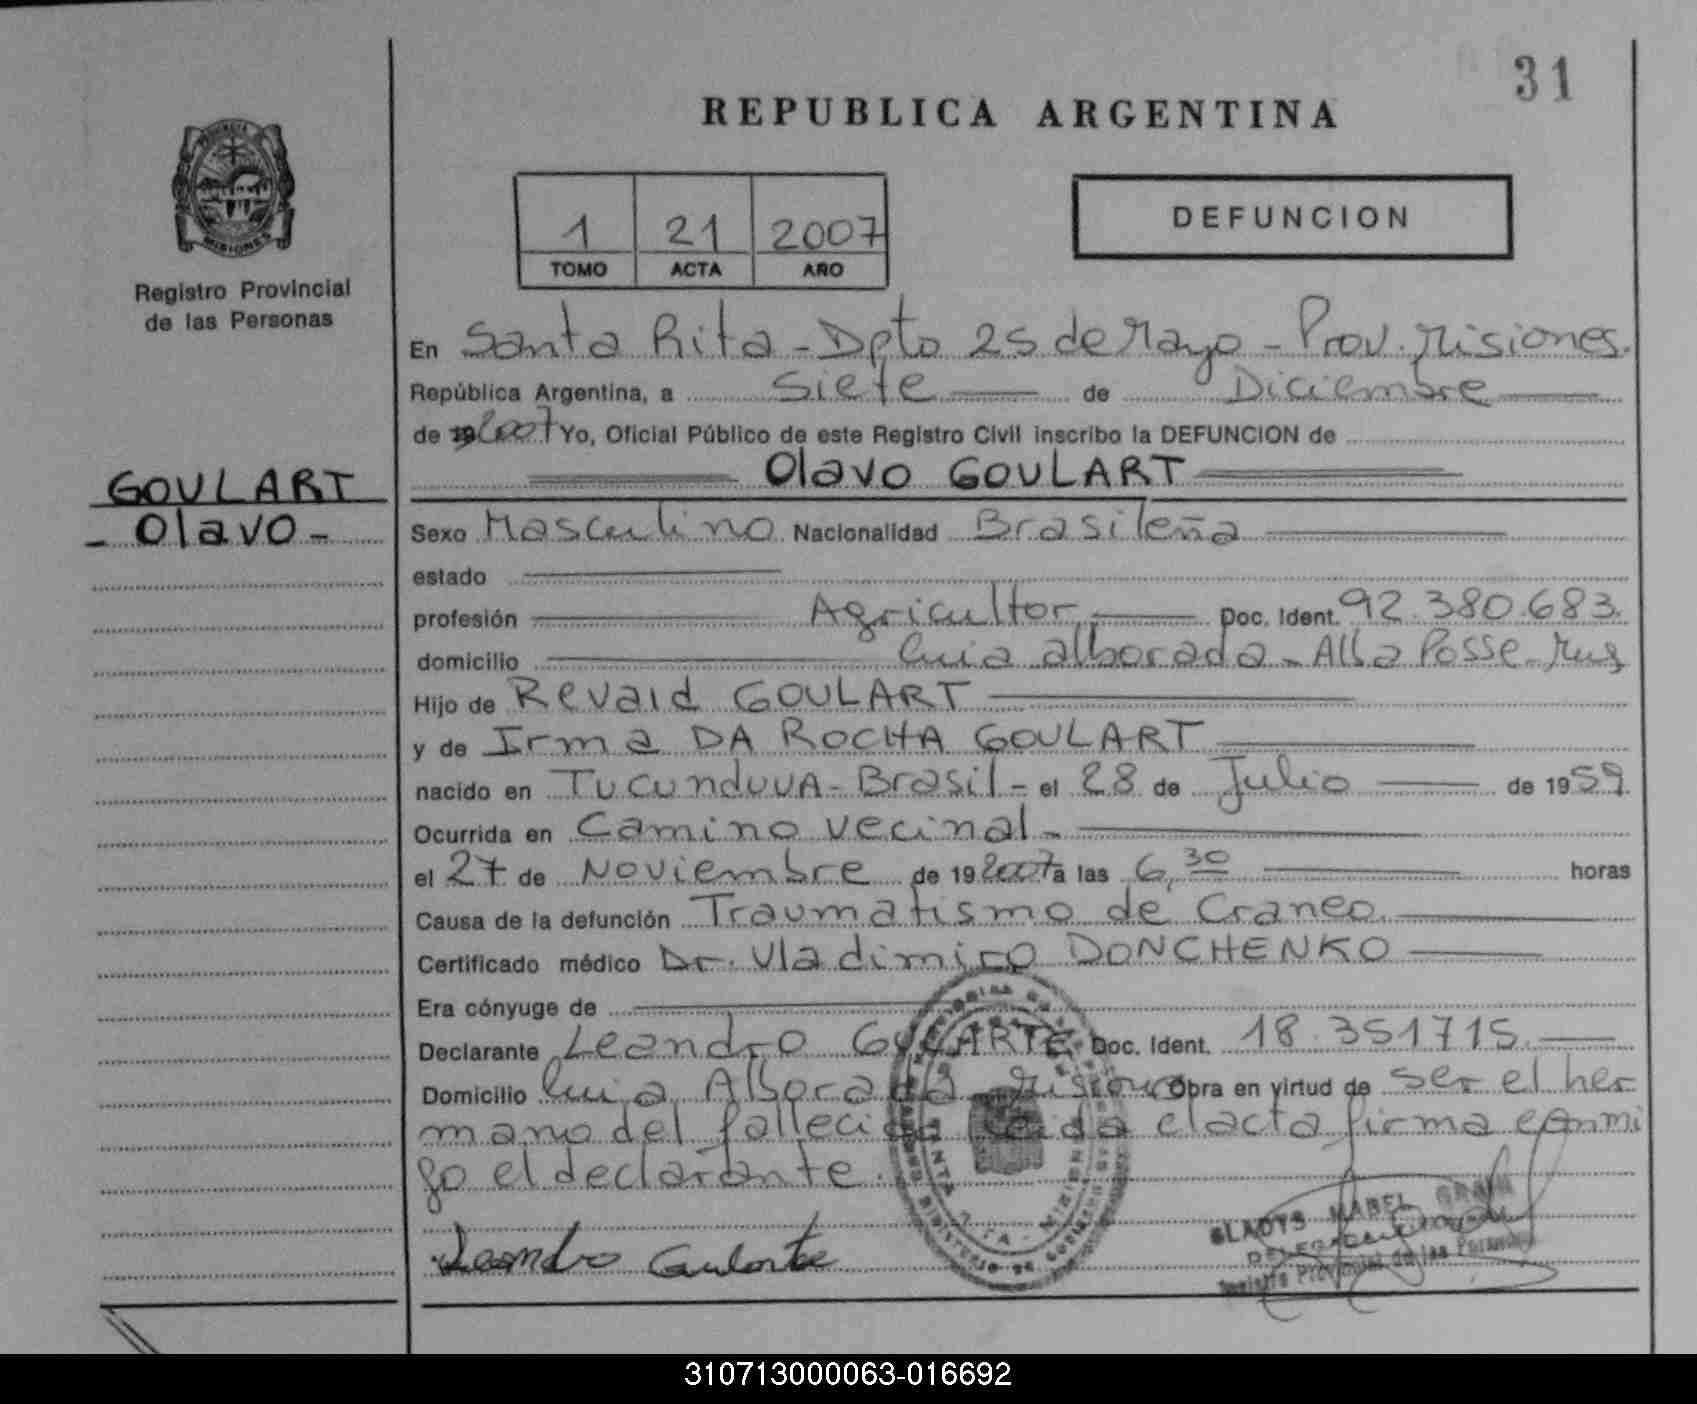 31
REPUBLICA ARGENTINA
PROVINCIA
MISIONES
Registro Provincial
de las Personas
1 21 2007
TOMO ACTA AÑO
DEFUNCION
En Santa Rita - Dpto 25 de Mayo - Prov. Misiones.
República Argentina, a Siete de Diciembre
de 192007 Yo, Oficial Público de este Registro Civil inscribo la DEFUNCION de
Olavo GOULART
GOULART
- Olavo -
Sexo Masculino Nacionalidad Brasileña
estado
profesión Agricultor Doc. Ident. 92.380.683.
domicilio alborada - Alba Posse - Mns
Hijo de Revaid GOULART
y de Irma DA ROCHA GOULART
nacido en TUCUNDUVA - Brasil - el 28 de Julio de 1959.
Ocurrida en Camino vecinal -
el 27 de Noviembre de 192007 a las 6,30 horas
Causa de la defunción Traumatismo de Craneo.
Certificado médico Dr. Vladimiro DONCHENKO
Era cónyuge de
Declarante Leandro Doc. Ident. 18.351715.
Domicilio Alborada Misiones Obra en virtud de ser el her
mano del fallecido Leida el acta firma conmi
go el declarante.
Leandro Gularte
GLADYS MABEL
Registro Provincial de las Personas
310713000063-016692